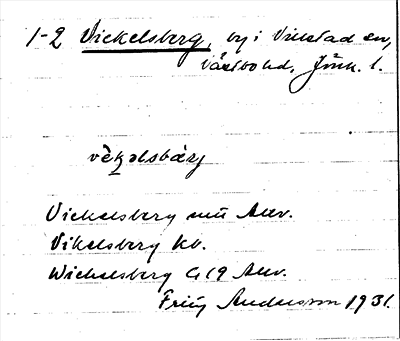 1-2 Vickelsberg, by i Villstad sn,
Västbo hd, Jönk. l.
vèkəlsbárj
Vickelsberg enl. Anv.
Vikelsberg kb.
Wickelsberg G 19 Anv.
Andersson 1931.